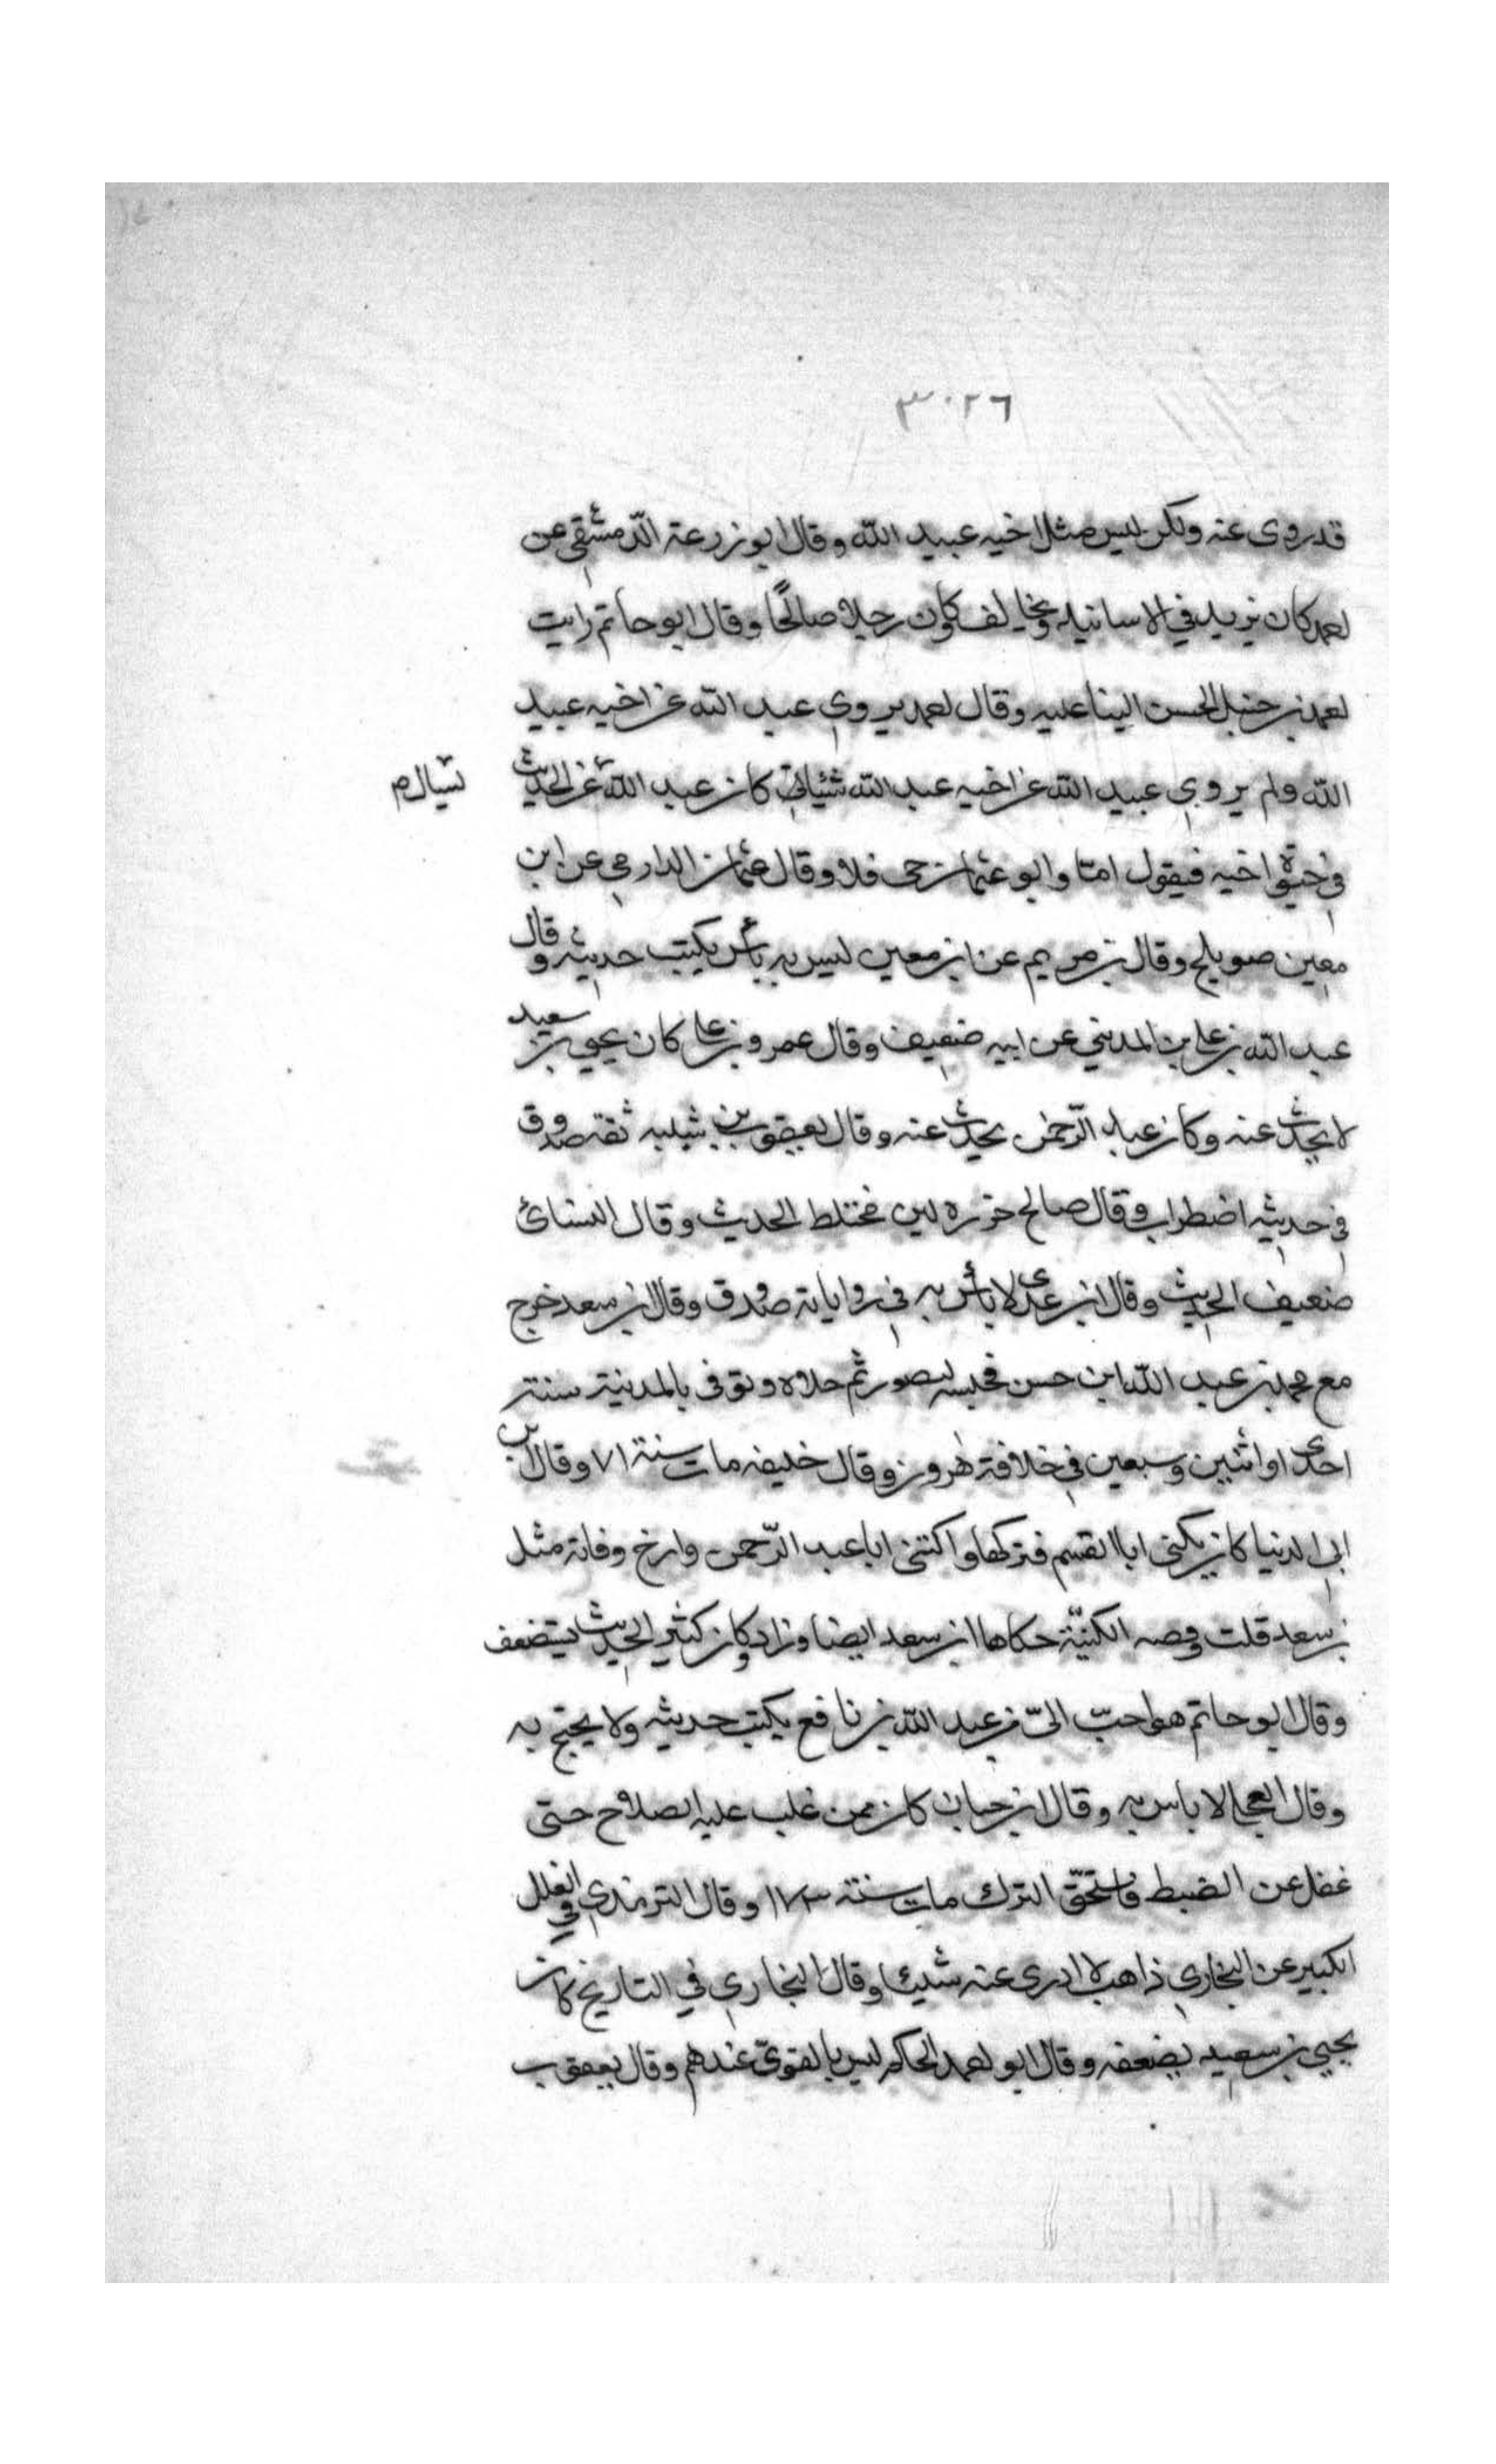 ٣٠٢٦
قد روى عنه ولكن ليس مثل اخيه عبيد الله وقال ابو زرعة الدّمشقي عن
احمد كان يزيد في الاسانيد ويخالف وكان رجلا صالحًا وقال ابو حاتم رايت
احمد بن حنبل الحسن الينا عليه وقال احمد يروي عبد الله عن اخيه عبيد
الله ولم يروي عبيد الله عن اخيه عبد الله شئيا كان عبد الله عن الحديث
يسال م
في حيوة اخيه فيقول اما وابو عثمان حى فلا وقال عثمان الدارمي عن ابن
معين صويلح وقال بن مريم عن ابن معين ليس به بأس يكتب حديثه وقال
عبد الله بن علي بن المديني عن ابيه ضعيف وقال عمرو بن علي كان يحيى بن سعيد
لا يحدث عنه وكان عبد الرّحمن يحدث عنه وقال يعقوب بن شيبه ثقه صدوق
في حديثه اضطراب وقال صالح جزره لين مختلط الحديث وقال النسائ
ضعيف الحديث وقال ابن عدى لا بأس به في روايانه صدوق وقال ابن سعد خرج
مع محمد بن عبد الله ابن حسن فحبسه المنصور ثم خلاه وتوفى بالمدينة سنة
احدى او اثنين وسبعين في خلافة هرون وقال خليفه مات سنة ٧١ وقال ابن
ابي الدنيا كان يكنى ابا القسم فتركها واكتنى ابا عبد الرّحمن وارخ وفاته مثل
بن سعد قلت وقصه الكنيّة حكاها ابن سعد ايضا وزاد وكان كثير الحديث يستضعف
وقال ابو حاتم هو احبّ اليّ من عبد الله بن نافع يكتب حديثه ولا يحتج به
وقال العجلي لا باس به وقال ابن حبان كان ممن غلب عليه الصلاح حتى
غفل عن الضبط فاستحقّ الترك مات سنة ١٧٣ وقال الترمذي في العلل
الكبير عن البخاري ذاهب لا ادرى عنه شيئا وقال البخاري في التاريخ كان
يحيى بن سعيد يضعفه وقال ابو احمد الحاكم ليس بالقويّ عندهم وقال يعقوب